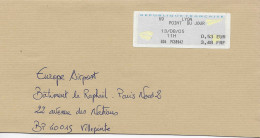 69 LYON
POINT DU JOUR
13/08/05
0,53 EUR
3,48 FRF
Europe Airport
Bâtiment le Raphaël - Paris Nord 2
22 avenue des Nations
BP 60015 Villepinte